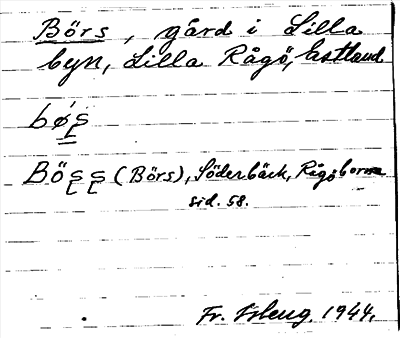 Börs, gård i Lilla
byn, Lilla Rågö, Estland
bøʂ
Böʂʂ (Börs), Söderbäck, Rågöborna
sid. 58.
Fr. 1944.